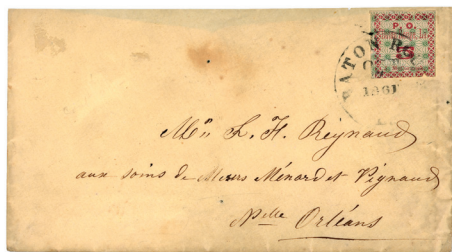 P. O.
5
BATON RO
1861
Mr. L. H. Reynaud
aux soins de Messrs Ménard et Vignaud
Nlle Orléans